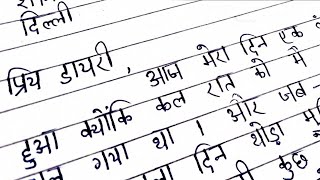 दिल्ली
प्रिय डायरी, आज मेरा दिन एक
हुआ क्योंकि कल रात को मैं
गया था । और जब
दिन थोड़ा
कुछ